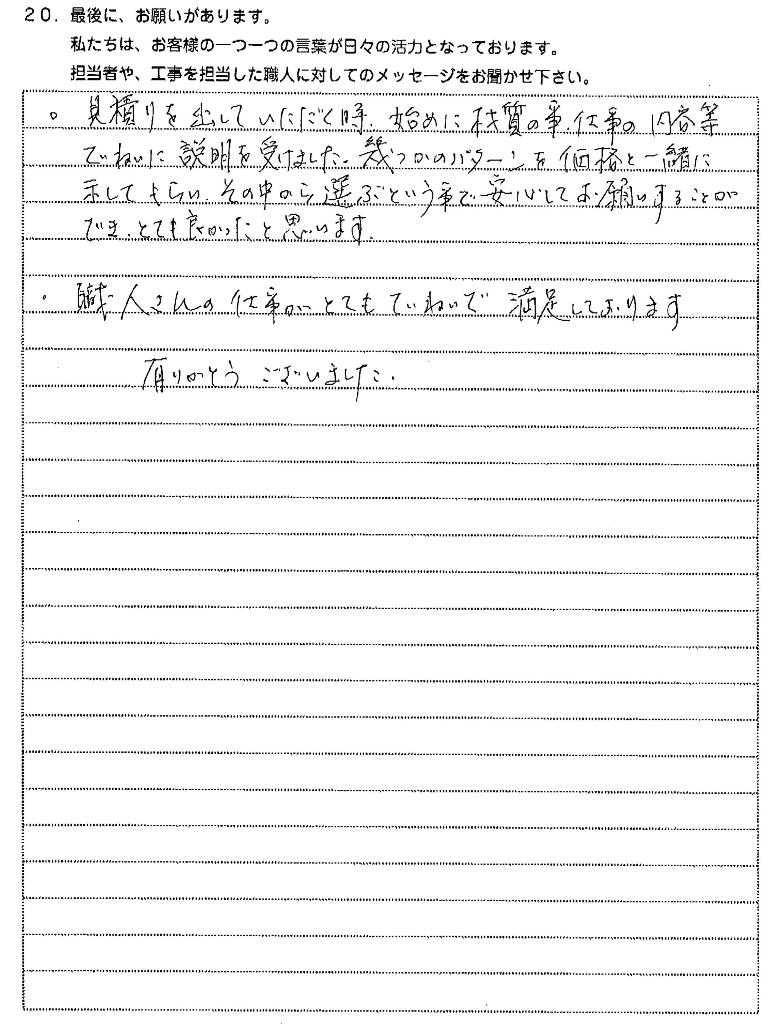 20. 最後に、お願いがあります。
私たちは、お客様の一つ一つの言葉が日々の活力となっております。
担当者や、工事を担当した職人に対してのメッセージをお聞かせ下さい。
。見積りを出していただく時、始めに材質の事、仕事の内容等
ていねいに説明を受けました。幾つかのパターンを価格と一緒に
示してもらい、その中から選ぶという事で安心してお願いすることが
でき、とても良かったと思います。
・職人さんの仕事がとてもていねいで 満足しております
有りがとう ございました。